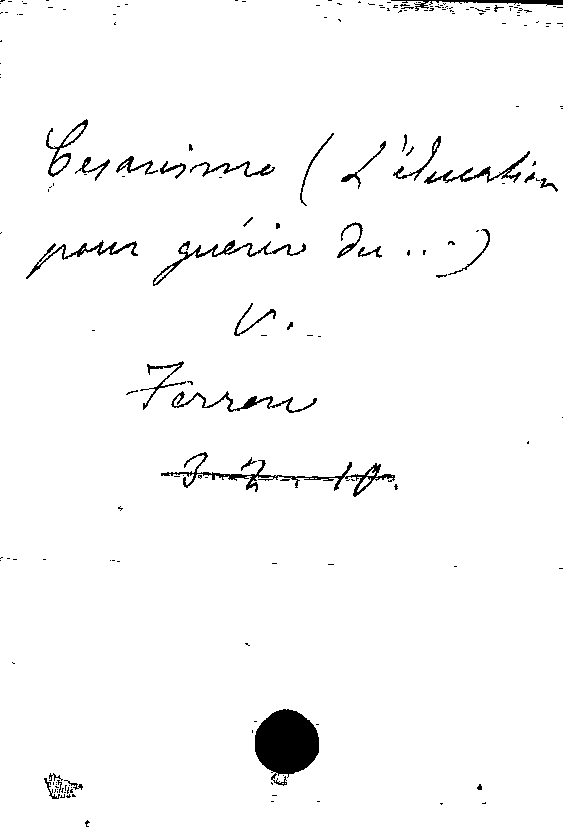 Cesarisme (L'éducation
pour guérir du ...)
V.
Ferron
3.2.10.